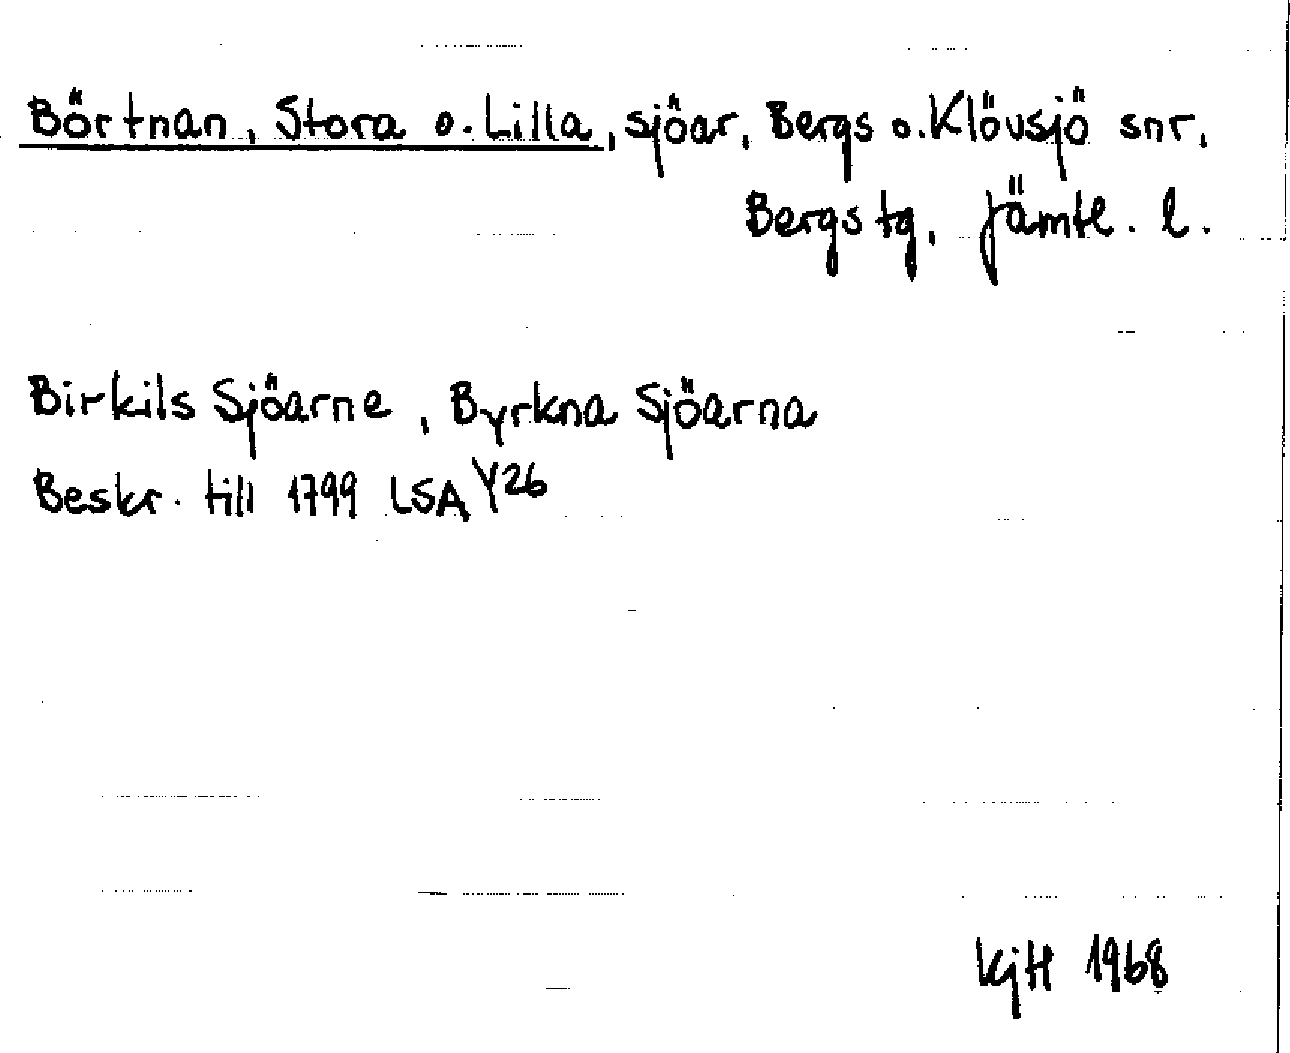 Börtnan, Stora o. Lilla, sjöar, Bergs o. Klövsjö snr,
Bergs tg, Jämtl. l.
Birkils Sjöarne, Byrkna Sjöarna
Beskr. till 1799 LSA Y26
KjH 1968